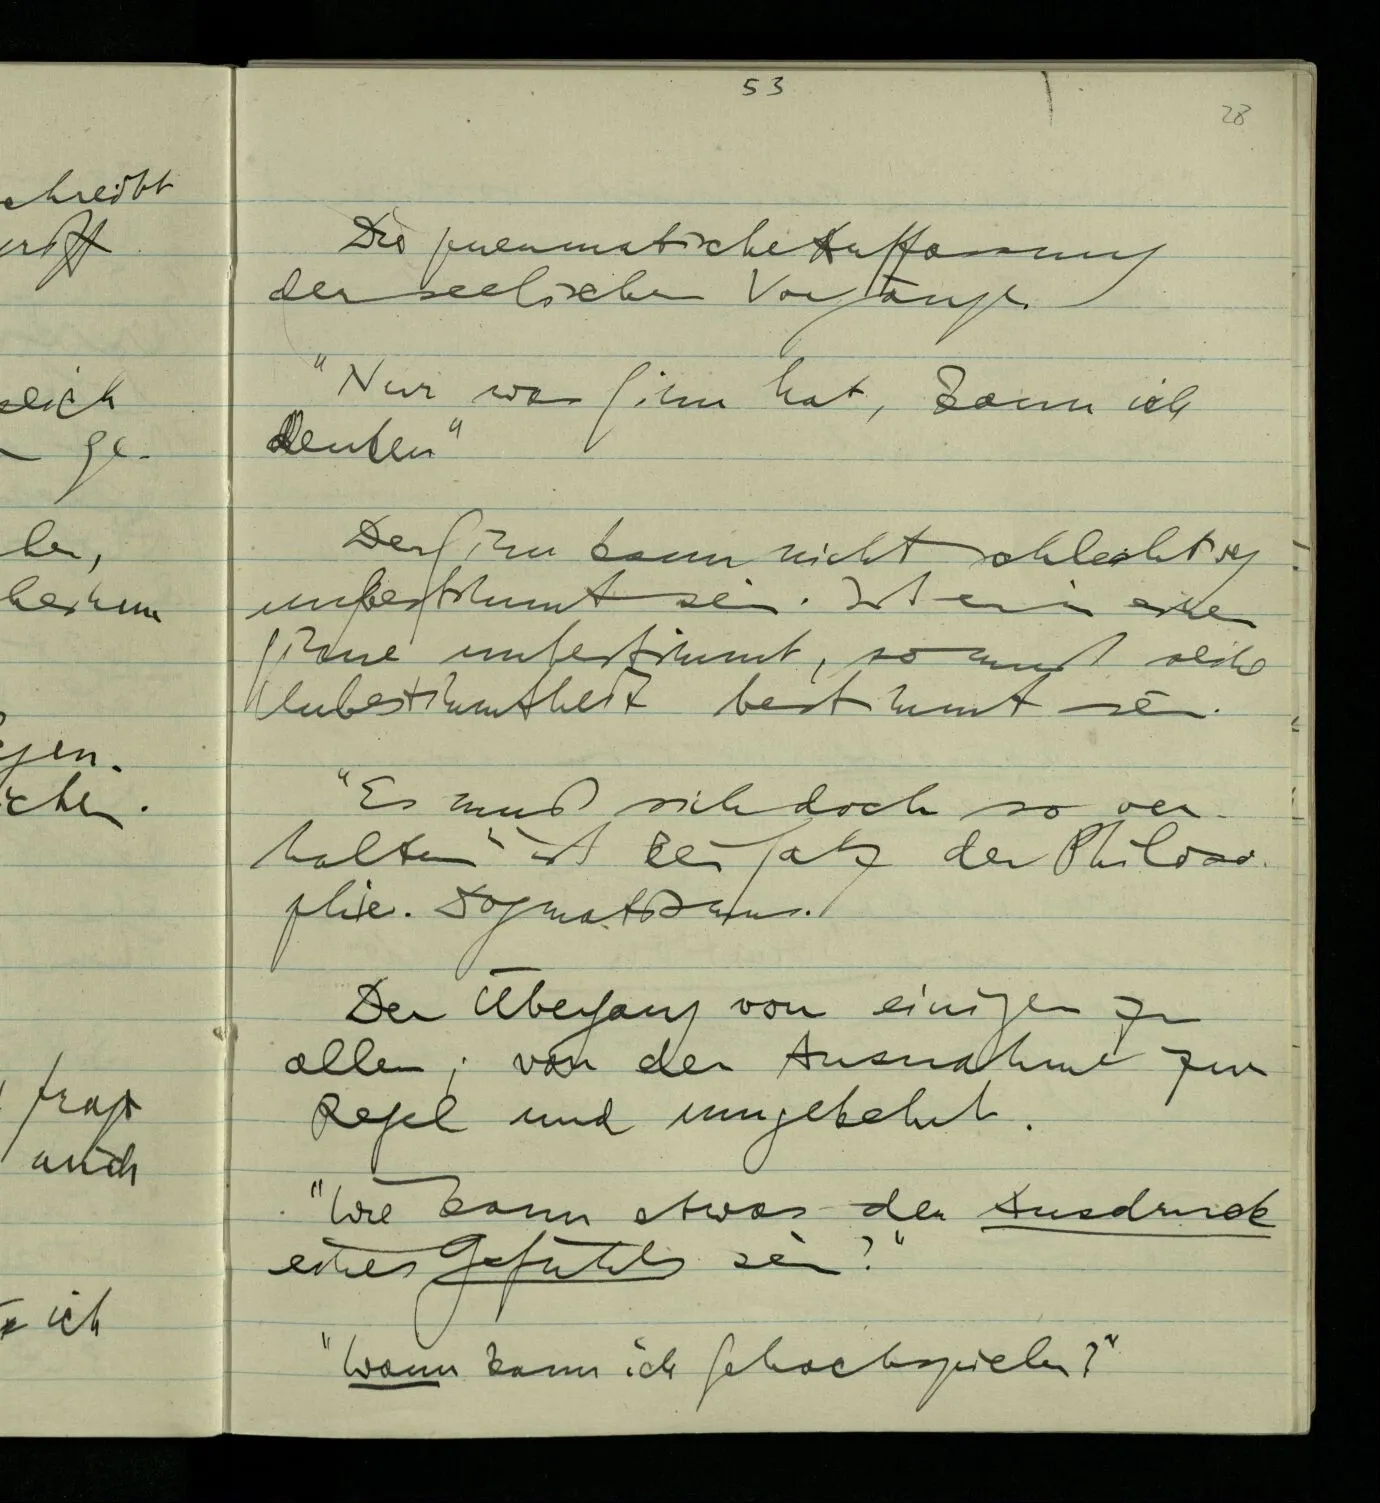 chreibt
rift
53
28
Die pneumatische Auffassung
der seelischen Vorgänge.
"Nur was Sinn hat, kann ich
denken"
Der Sinn kann nicht schlechtweg
unbestimmt sein. Ist er in einem
Sinne unbestimmt, so muß seine
Unbestimmtheit bestimmt sein.
"Es muß sich doch so ver-
halten" ist kein Satz der Philoso-
phie. Dogmatismus.
Der Übergang von einigen zu
allen; von der Ausnahme zur
Regel und umgekehrt.
"Wie kann etwas der Ausdruck
eines Gefühls sein?"
"Wann kann ich Schach spielen?"
ge-
gen.
chen.
fragt
auch
ich